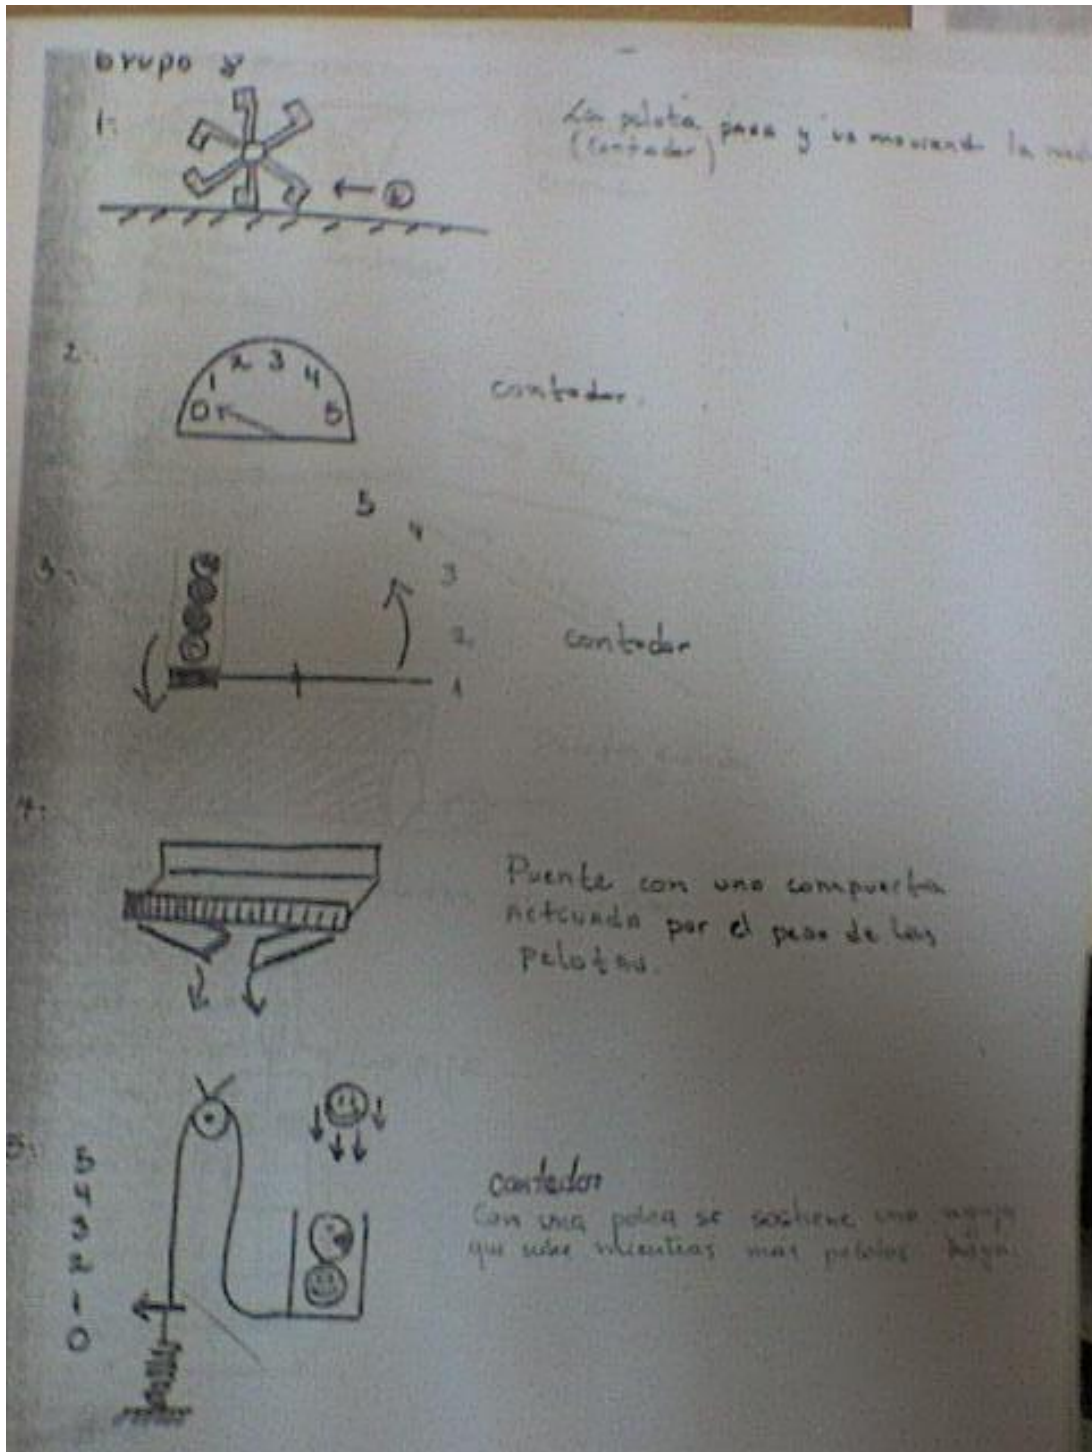 Grupo 8
1:
La pelota pasa y va moviendo la
(contador)
2.
0 1 2 3 4 5
contador.
5
4
3.
3
2
contador
1
4.
Puente con una compuerta
actuada por el peso de las
pelotas.
5:
5
4
3
2
1
0
contador
Con una polea se sostiene una aguja
que sube mientras mas pelotas haya.